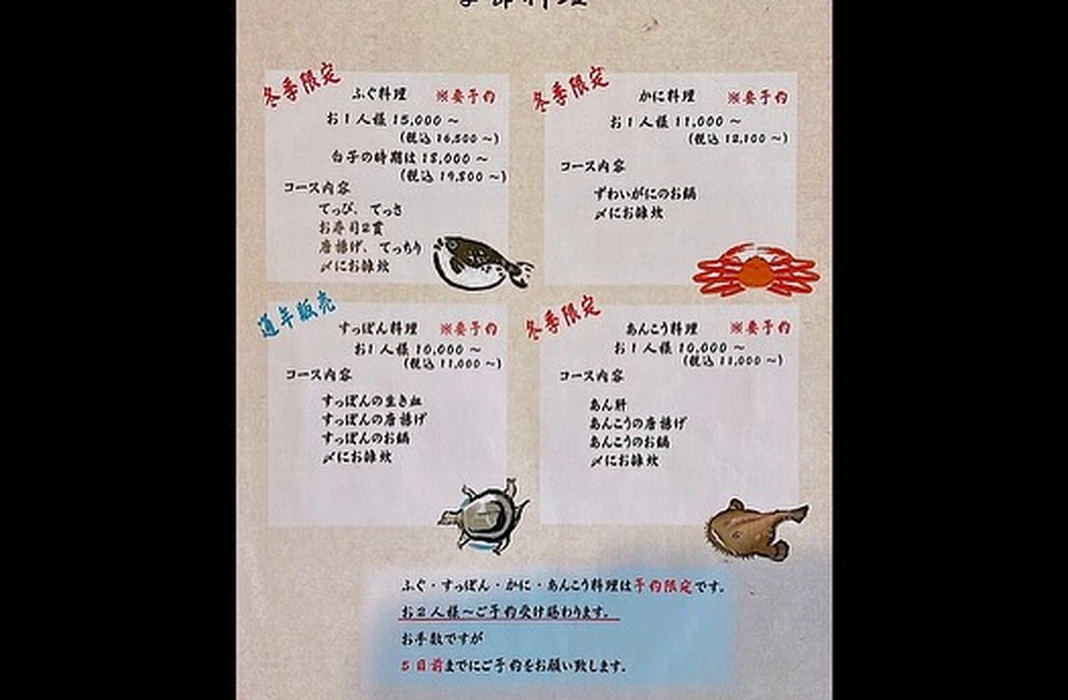 季節料理
冬季限定
ふぐ料理 ※要予約
お1人様 15,000 ~
(税込 16,500 ~)
白子の時期は 18,000 ~
(税込 19,800 ~)
コース内容
てっぴ、てっさ
お寿司2貫
唐揚げ、てっちり
〆にお雑炊
冬季限定
かに料理 ※要予約
お1人様 11,000 ~
(税込 12,100 ~)
コース内容
ずわいがにのお鍋
〆にお雑炊
通年販売
すっぽん料理 ※要予約
お1人様 10,000 ~
(税込 11,000 ~)
コース内容
すっぽんの生き血
すっぽんの唐揚げ
すっぽんのお鍋
〆にお雑炊
冬季限定
あんこう料理 ※要予約
お1人様 10,000 ~
(税込 11,000 ~)
コース内容
あん肝
あんこうの唐揚げ
あんこうのお鍋
〆にお雑炊
ふぐ・すっぽん・かに・あんこう料理は予約限定です。
お2人様~ご予約受け賜わります。
お手数ですが
5日前までにご予約をお願い致します。